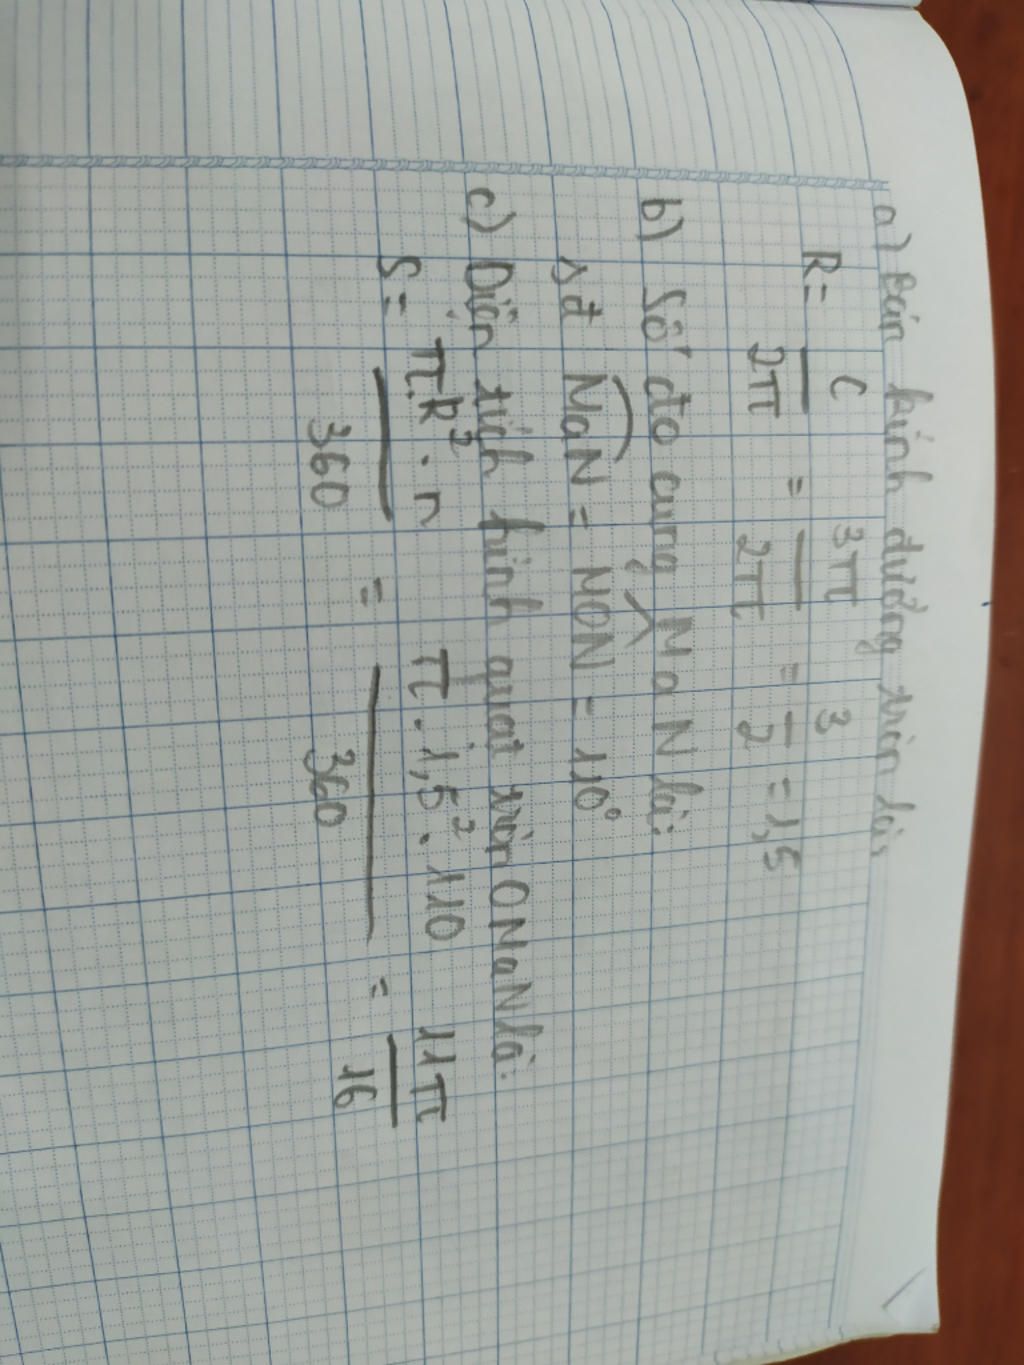 a) Bán kính đường tròn là:
R = C/2π = 3π/2π = 3/2 = 1,5
b) Số đo cung MaN là:
sđ MaN = MON = 110°
c) Diện tích hình quạt tròn OMaN là:
S = π.R².n/360 = π.1,5².110/360 = 11π/16